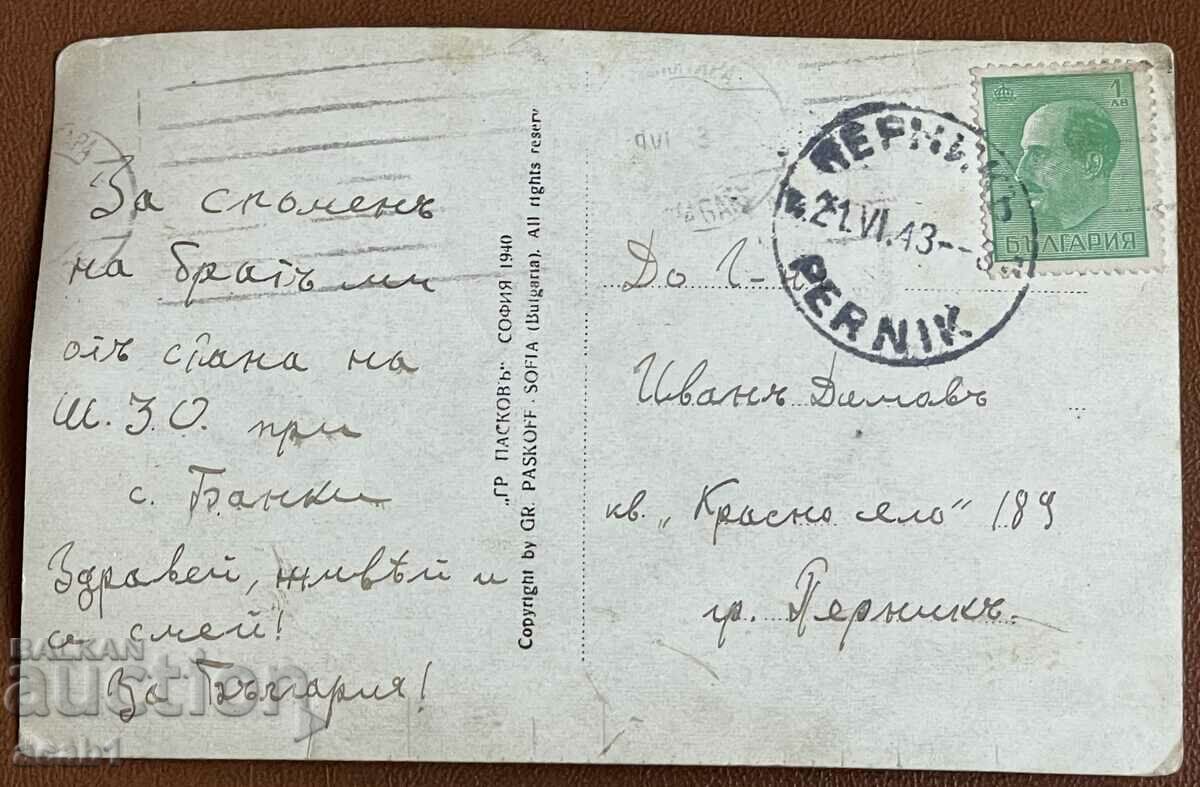 За споменъ
на братъ ми
отъ стана на
Ш.З.О. при
с. Банки
Здравей, живѣй и
се смей!
За България!
„ГР ПАСКОВЪ“ СОФИЯ 1940
Copyright by GR. PASKOFF - SOFIA (Bulgaria). All rights reserv
1 ЛВ
БЪЛГАРИЯ
21.VI.43
PERNIK
До Г-н
Иванъ Димовъ
кв. „Красно село“ 189
гр. Перникъ.
BALKAN
auction
acab1